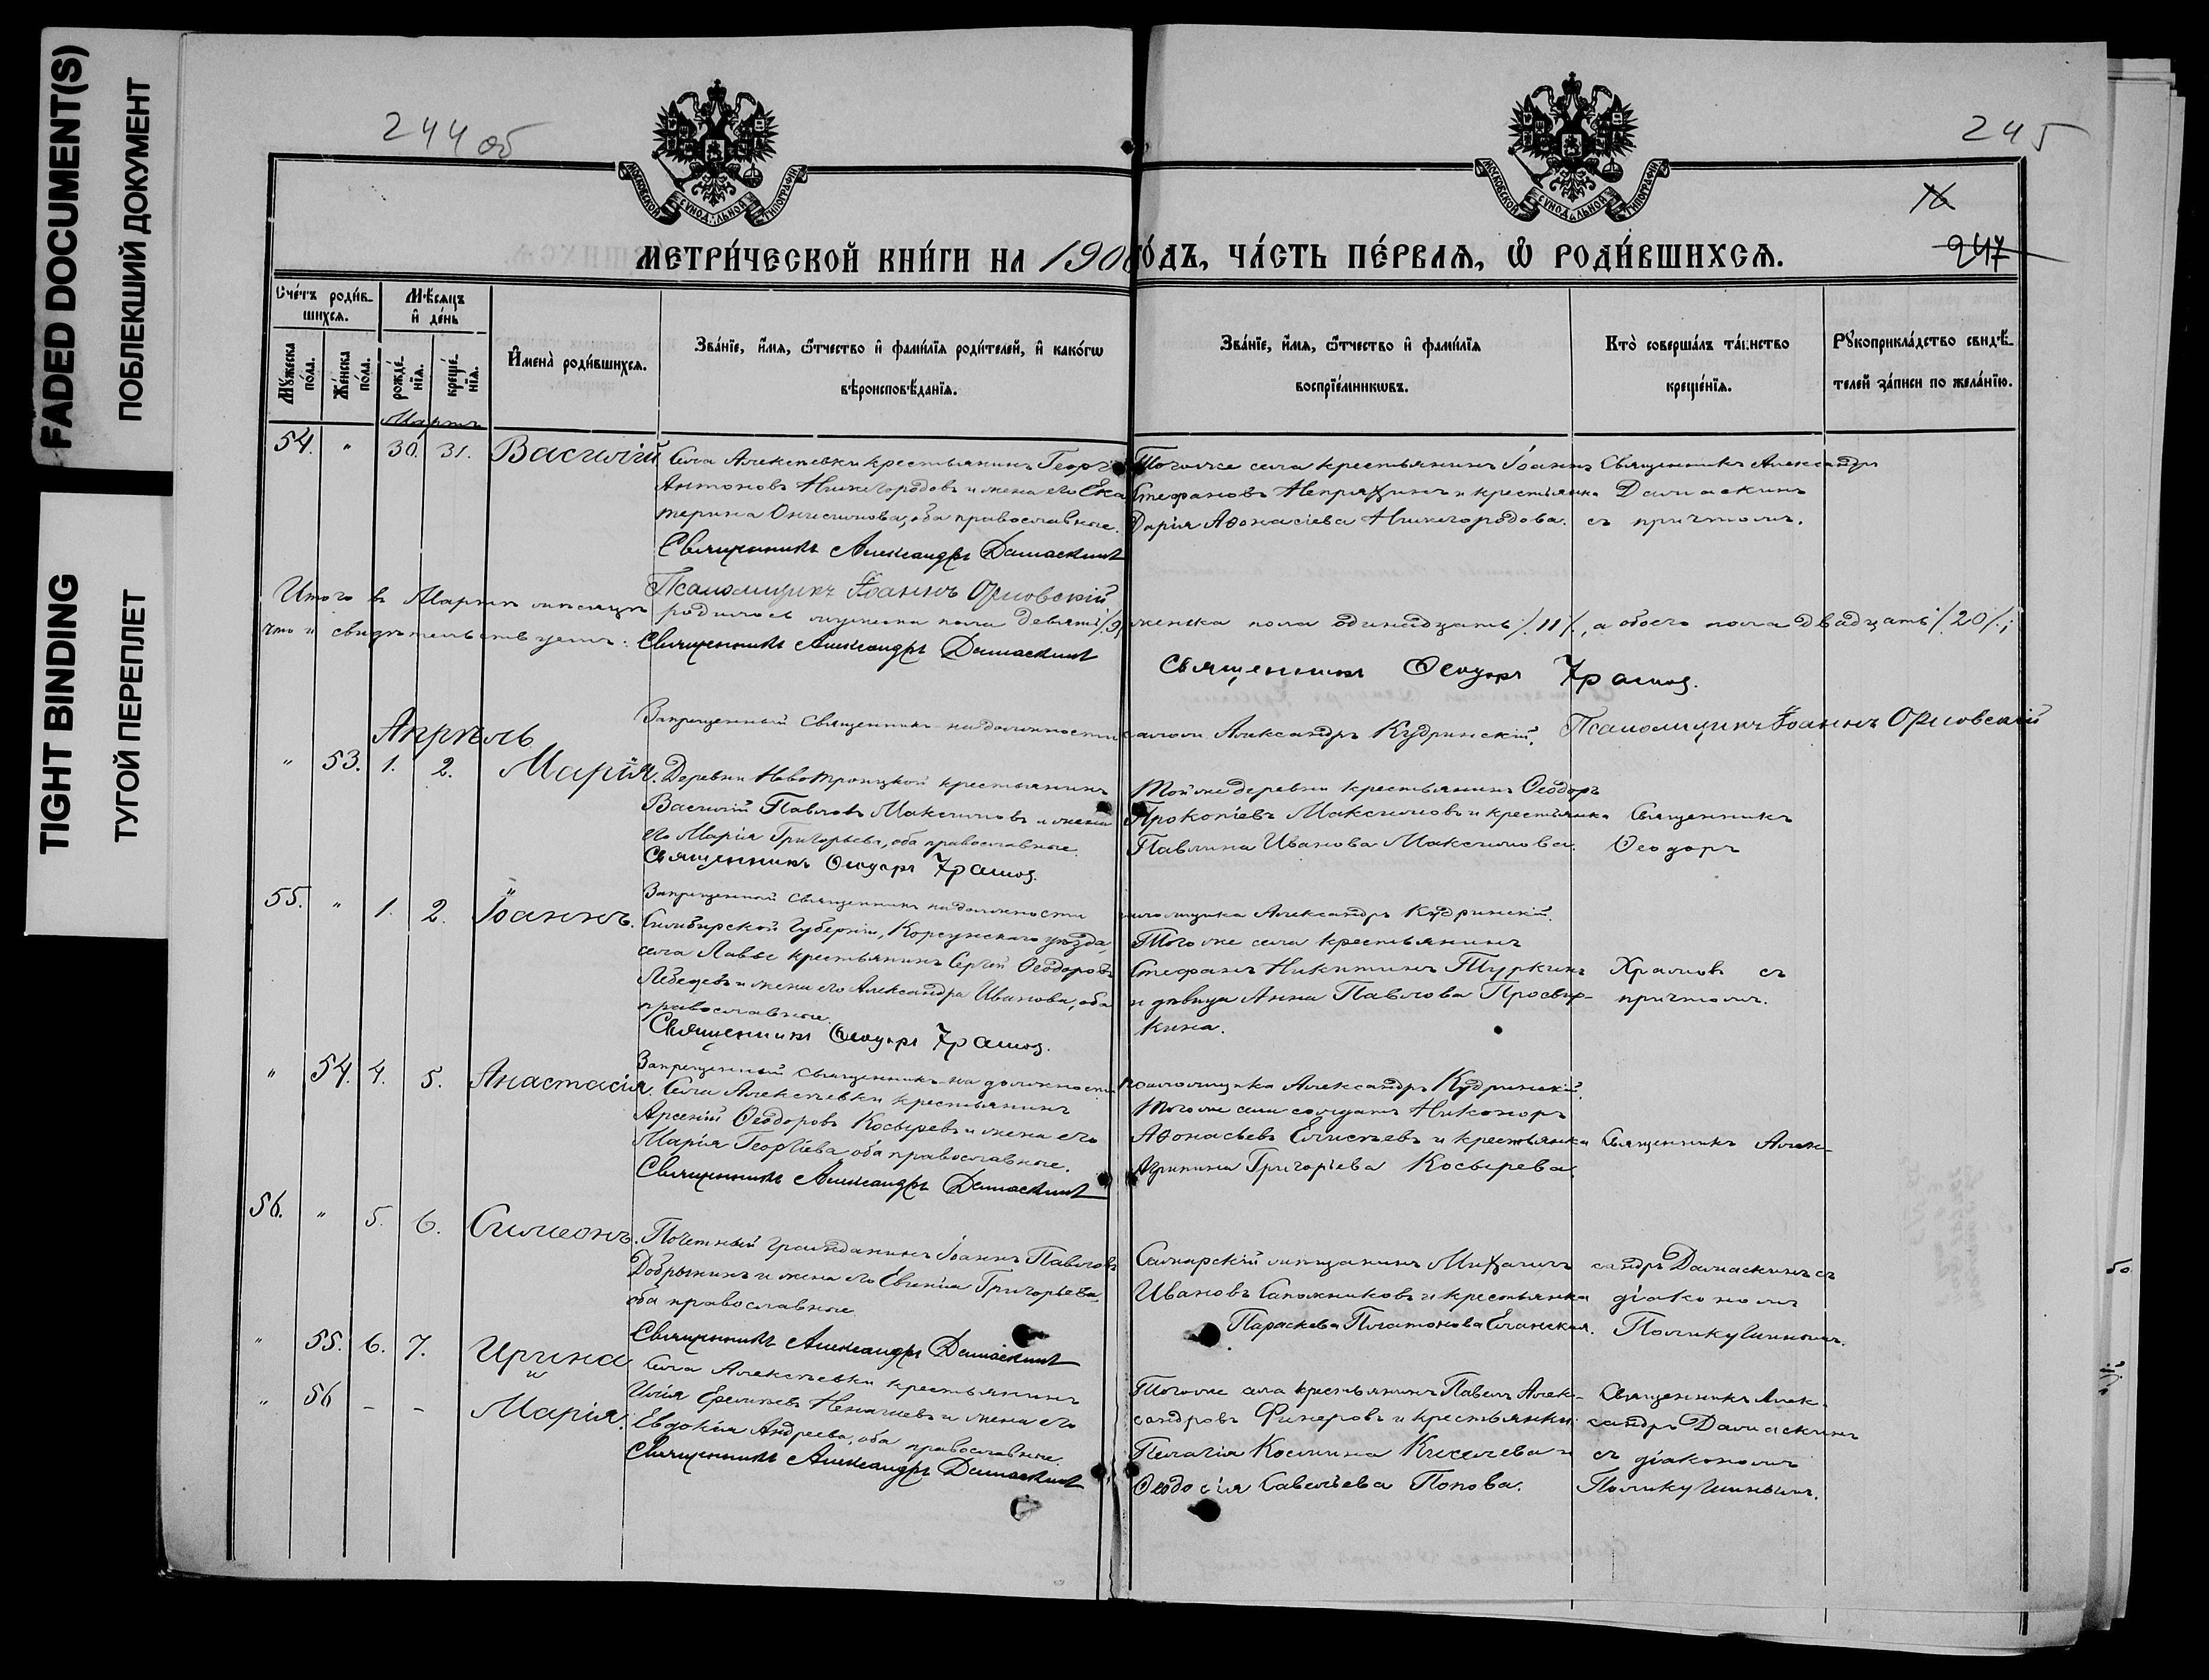 FADED DOCUMENT(S)
ПОБЛЕКШИЙ ДОКУМЕНТ
TIGHT BINDING
ТУГОЙ ПЕРЕПЛЕТ
244 об
245
МОСКОВСКОЙ СУНОДАЛЬНОЙ ТИПОГРАФІИ
МОСКОВСКОЙ СУНОДАЛЬНОЙ ТИПОГРАФІИ
16
247
МЕТРИ́ЧЕСКОЙ КНИ́ГИ НА 190
О́ДЪ, ЧА́СТЬ ПЕ́РВАЯ, Ѿ РОДИ́ВШИХСЯ.
Сче́тъ роди́в-
шихся.
Мѣ́сяцъ
и҆ де́нь
Му́жеска по́ла.
Же́нска по́ла.
рожде́-нїя.
креще́-нїя.
И҆мена̀ роди́вшихся.
Зва́нїе, и҆́мя, ѻ҆́тчество и҆ фами́лїя роди́телей, и҆ како́гѡ
вѣроисповѣ́данїя.
Зва́нїе, и҆́мя, ѻ҆́тчество и҆ фами́лїя
воспрїе́мникѡвъ.
Кто̀ соверша́лъ та́инство
креще́нїя.
Рꙋкоприкла́дство свидѣ́-
телей за́писи по жела́нїю.
Мартъ
54. " 30. 31. Василій
Села Алексѣевки крестьянинъ Георг
Антоновъ Нижегородовъ и жена его Ека
терина Онисимова, оба православные.
Священникъ Александръ Дамаскинъ
Псаломщикъ Іоаннъ Орловскій
Тогоже села крестьянинъ Іоаннъ
Стефановъ Непряхинъ и крестьянка
Дарія Аѳонасіева Нижегородова.
Священникъ Александръ
Дамаскинъ
съ причтомъ.
Итого въ Мартѣ мѣсяцѣ родилось мужеска пола девять /.9 женска пола одинадцать /.11/., а обоего пола двадцать /.20/.;
что и свидѣтельствуемъ: Священникъ Александръ Дамаскинъ
Священникъ Ѳеодоръ Храмов.
Запрещенный священникъ на должности псаломщ. Александръ Кудринскій.
Псаломщикъ Іоаннъ Орловскій
Апрѣль
" 53. 1. 2. Марія.
Деревни Новотроицкой крестьянинъ
Василій Павловъ Максимовъ и жена
его Марія Григорьева, оба православные.
Священникъ Ѳеодоръ Храмов.
Тойже деревни крестьянинъ Ѳеодоръ
Прокопіевъ Максимовъ и крестьянка
Павлина Иванова Максимова.
Священникъ
Ѳеодоръ
Запрещенный священникъ на должности псаломщика Александръ Кудринскій.
55. " 1. 2. Іоаннъ.
Симбирской Губерніи, Корсунскаго уѣзда,
села Лавы крестьянинъ Сергій Ѳеодоровъ
Лебедевъ и жена его Александра Иванова, оба
православные.
Священникъ Ѳеодоръ Храмов.
Того же села крестьянинъ
Стефанъ Никитинъ Туркинъ
и дѣвица Анна Павлова Просвир-
кина.
Храмовъ съ
причтомъ.
Запрещенный священникъ на должности псаломщика Александръ Кудринскій.
" 54. 4. 5. Анастасія.
Села Алексѣевки крестьянинъ
Арсеній Ѳеодоровъ Косыревъ и жена его
Марія Георгіева, оба православные.
Священникъ Александръ Дамаскинъ
Тогоже села солдатъ Никоноръ
Аѳонасьевъ Елисѣевъ и крестьянка
Агрипина Григоріева Косырева.
Священникъ Алек-
56. " 5. 6. Симеонъ.
Почетный гражданинъ Іоаннъ Павловъ
Добрынинъ и жена его Евгенія Григорьева,
оба православные.
Священникъ Александръ Дамаскинъ
Самарскій мѣщанинъ Михаилъ
Ивановъ Сапожниковъ и крестьянка
Параскева Платонова Еланская.
сандръ Дамаскинъ съ
діакономъ
Поликушинымъ.
" 55. 6. 7. Ирина
и
" 56 - - Марія.
Села Алексѣевки крестьянинъ
Илія Ефимьевъ Ненашевъ и жена его
Евдокія Андреева, оба православные.
Священникъ Александръ Дамаскинъ
Тогоже села крестьянинъ Павелъ Алек-
сандровъ Финеровъ и крестьянки:
Пелагія Космина Киселева и
Ѳеодосія Савельева Попова.
Священникъ Алек-
сандръ Дамаскинъ
съ діакономъ
Поликушинымъ.